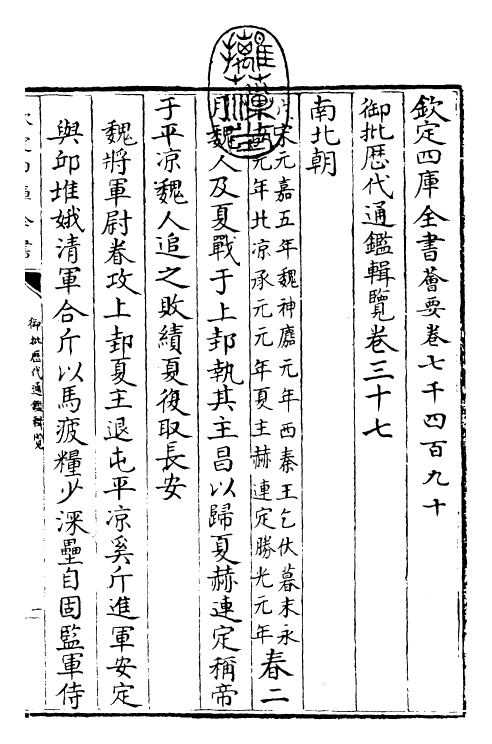 欽定四庫全書薈要卷七千四百九十
御批歴代通鑑輯覽卷三十七
南北朝
宋元嘉五年魏神䴥元年西秦王乞伏暮末永
元年北凉承元元年夏主赫連定勝光元年
春二
月魏人及夏戰于上邽執其主昌以歸夏赫連定稱帝
于平凉魏人追之敗績夏復取長安
魏將軍尉眷攻上邽夏主退屯平凉奚斤進軍安定
與邱堆娥清軍合斤以馬疲糧少深壘自固監軍侍
御批歴代通鑑輯覽
一